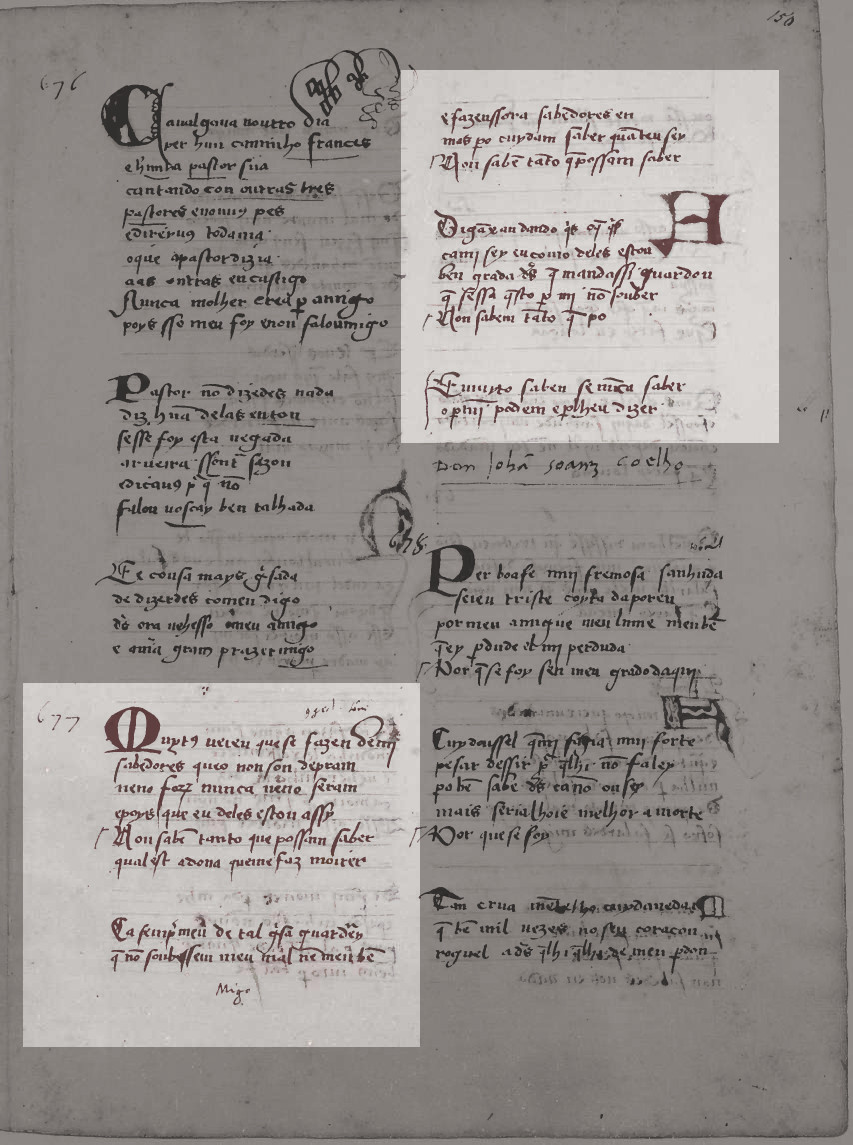 150
676
Caualgaua noutro dia
per hun caminho frances
e hunha pastor siia
cantando con outras tres
pastores enonus pes
edireyus todauia
oque apastor dizia
aas outras encastigo
Nunca molher crea per amigo
poys sse meu foy enon falou migo
Pastor nō dizedes nada
diz hūa delas enton
sesse foy esta uegada
ar uerra sson
edicaus por q̄ no
falou uoscay ben talhada
Ee cousa mays gⁱsada
de dizerdes comeu digo
ds̄ ora uehesso omeu amigo
e gram prazer migo
677
Muytos ueieu que se fazen de mi
sabedores queo non son depram
neno forō nunca neno seram
epoys que eu deles estou assy
Non sabē tanto que possan saber
qual est adona que me faz moirer
Ca sempr meu de tal gⁱsa guardey
q̄ nō soubessem meu mal nē meu bē
Migo
efazenssora sabedores en
mas po cuydam saber quāteu sey
Non sabē tāto q̄ possam saber
Digā andando
cami sey eu como deles estou
ben grada ds̄ q̄ mandassi guardou
q̄ q̄sto mi nō souber
Non sabem tāto q̄ po
E muyto saben se nūca saber
o podem e per lheu dizer
Don Johā Soarz Coelho
678
Per boafe mui fremosa sanhuda
seieu triste coyta daporen
por meu amigue meu lume meu bē
q̄ ey pdude el mj perduda
Por q̄ se foy sen meu grado daqui
Cuydoussel q̄ mi fazia mui forte
pesar dessir q̄lhi nō faley
po bē sabe ds̄ ca nō ousey
mais serialhoie melhor a morte
Por que se foy
Tan crua cuydaueda
q̄ bē mil uezes no seu coraçon
roguel a ds̄ q̄lhi de meu pdon